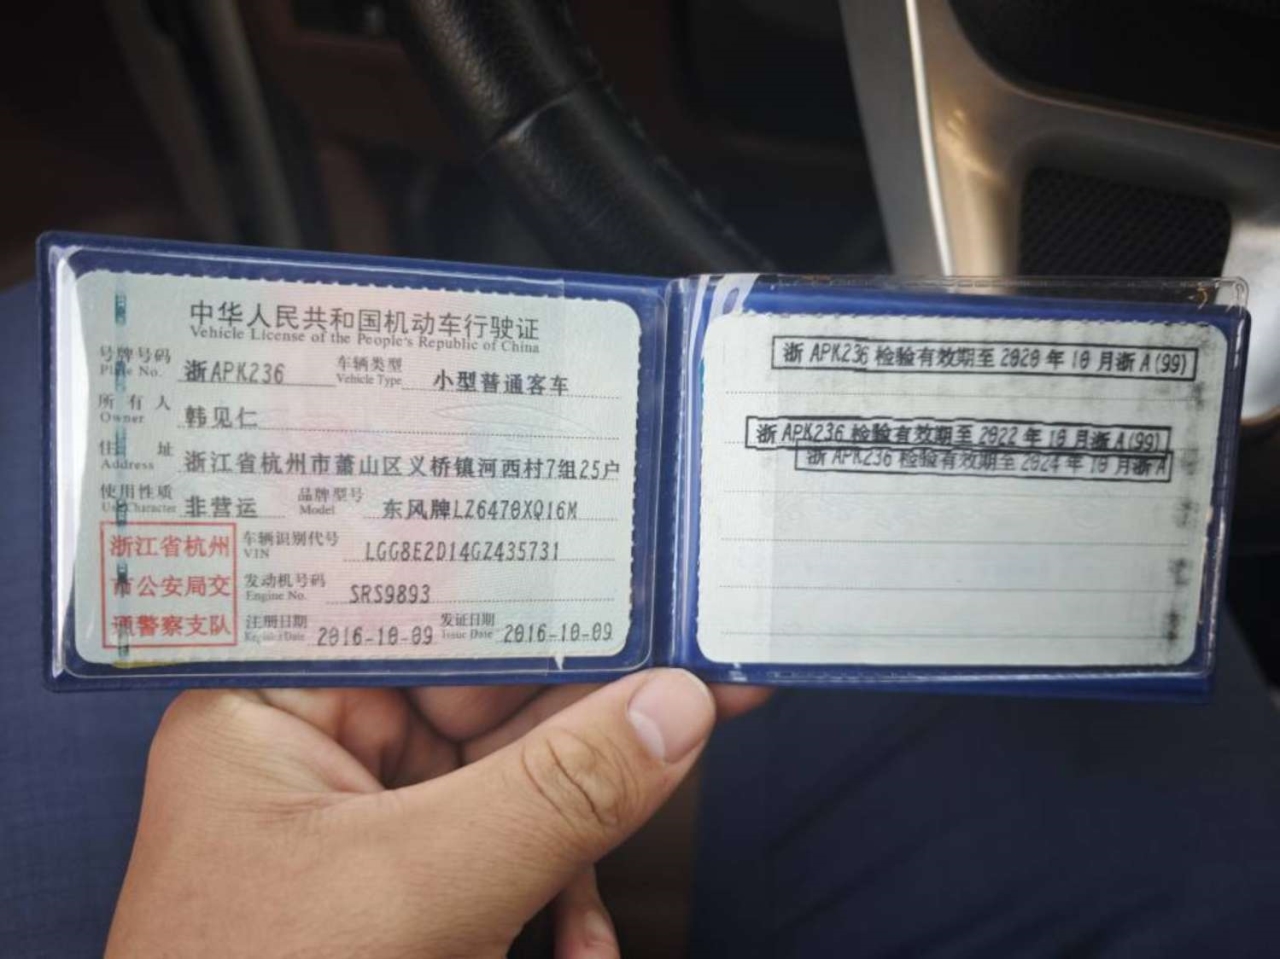 中华人民共和国机动车行驶证
Vehicle License of the People's Republic of China
号牌号码 浙APK236 车辆类型 小型普通客车
Plate No. Vehicle Type
所有人 韩见仁
Owner
住址 浙江省杭州市萧山区义桥镇河西村7组25户
Address
使用性质 非营运 品牌型号 东风牌LZ6470XQ16M
Use Character Model
浙江省杭州 车辆识别代号 LGG8E2D14GZ435731
VIN
市公安局交 发动机号码 SRS9893
Engine No.
通警察支队 注册日期 2016-10-09 发证日期 2016-10-09
Register Date Issue Date
浙APK236检验有效期至2020年10月浙A(99)
浙APK236检验有效期至2022年10月浙A(99)
浙APK236检验有效期至2024年10月浙A